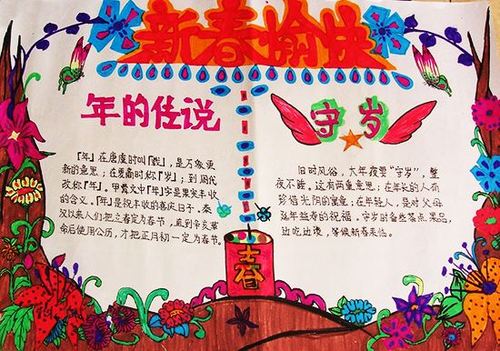 新春愉快
年的传说
『年』在唐虞时叫『载』,是万象更
新的意思;在夏商时称『岁』;到周代
改称『年』。甲骨文中『年』字是果实丰收
的含义。『年』是祝丰收的喜庆日子。秦
汉以来人们把立春定为春节,直到辛亥革
命后使用公历,才把正月初一定为春节。
守岁
旧时风俗,大年夜要"守岁",整
夜不睡。这有两重意思:在年长的人有
珍惜光阴的寓意;在年轻人,是对父母
延年益寿的祝福。守岁时备些茶点果品,
边吃边谈,等候新春来临。
春